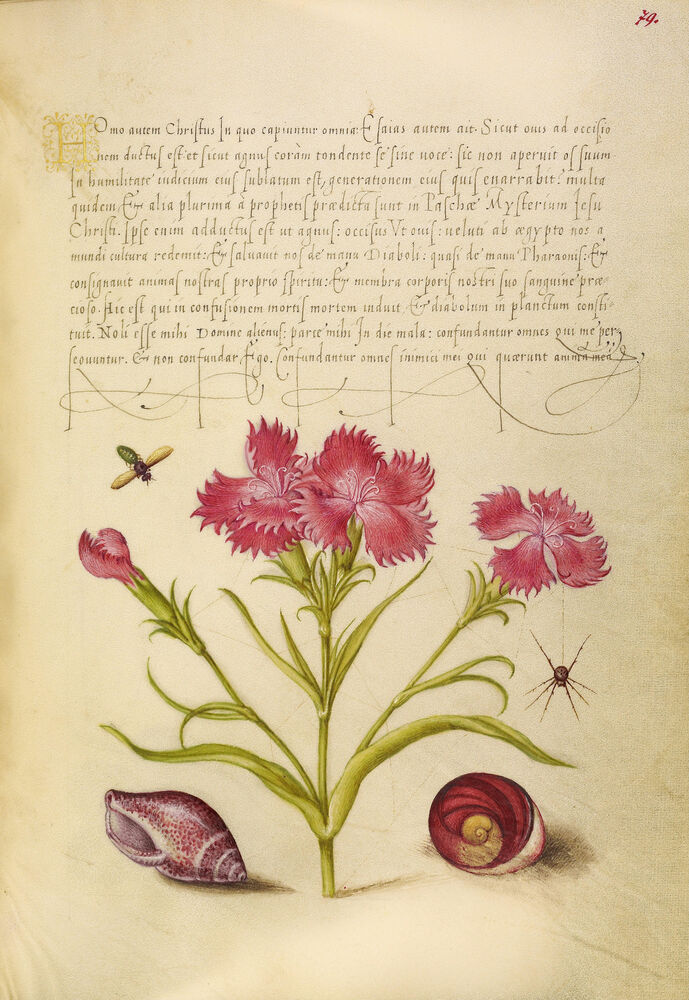 79.
Homo autem Christus In quo capiuntur omnia: Esaias autem ait. Sicut ouis ad occisio
nem ductus est: et sicut agnus coràm tondente se sine uoce: sic non aperuit os suum
In humilitate iudicium eius sublatum est, generationem eius quis enarrabit? multa
quidem Et alia plurima à prophetis prædicta sunt in Paschæ Mysterium Jesu
Christi. Ipse enim adductus est ut agnus: occisus Vt ouis: ueluti ab ægypto nos a
mundi cultura redemit: Et saluauit nos de manu Diaboli: quasi de manu Pharaonis: Et
consignauit animas nostras proprio spiritu: Et membra corporis nostri suo sanguine præ-
cioso. Hic est qui in confusionem mortis mortem induit, Et diabolum in planctum consti-
tuit. Noli esse mihi Domine alienus: parce mihi In die mala: confundantur omnes qui me per-
sequuntur. Et non confundar Ego. Confundantur omnes inimici mei qui quærunt anima mea